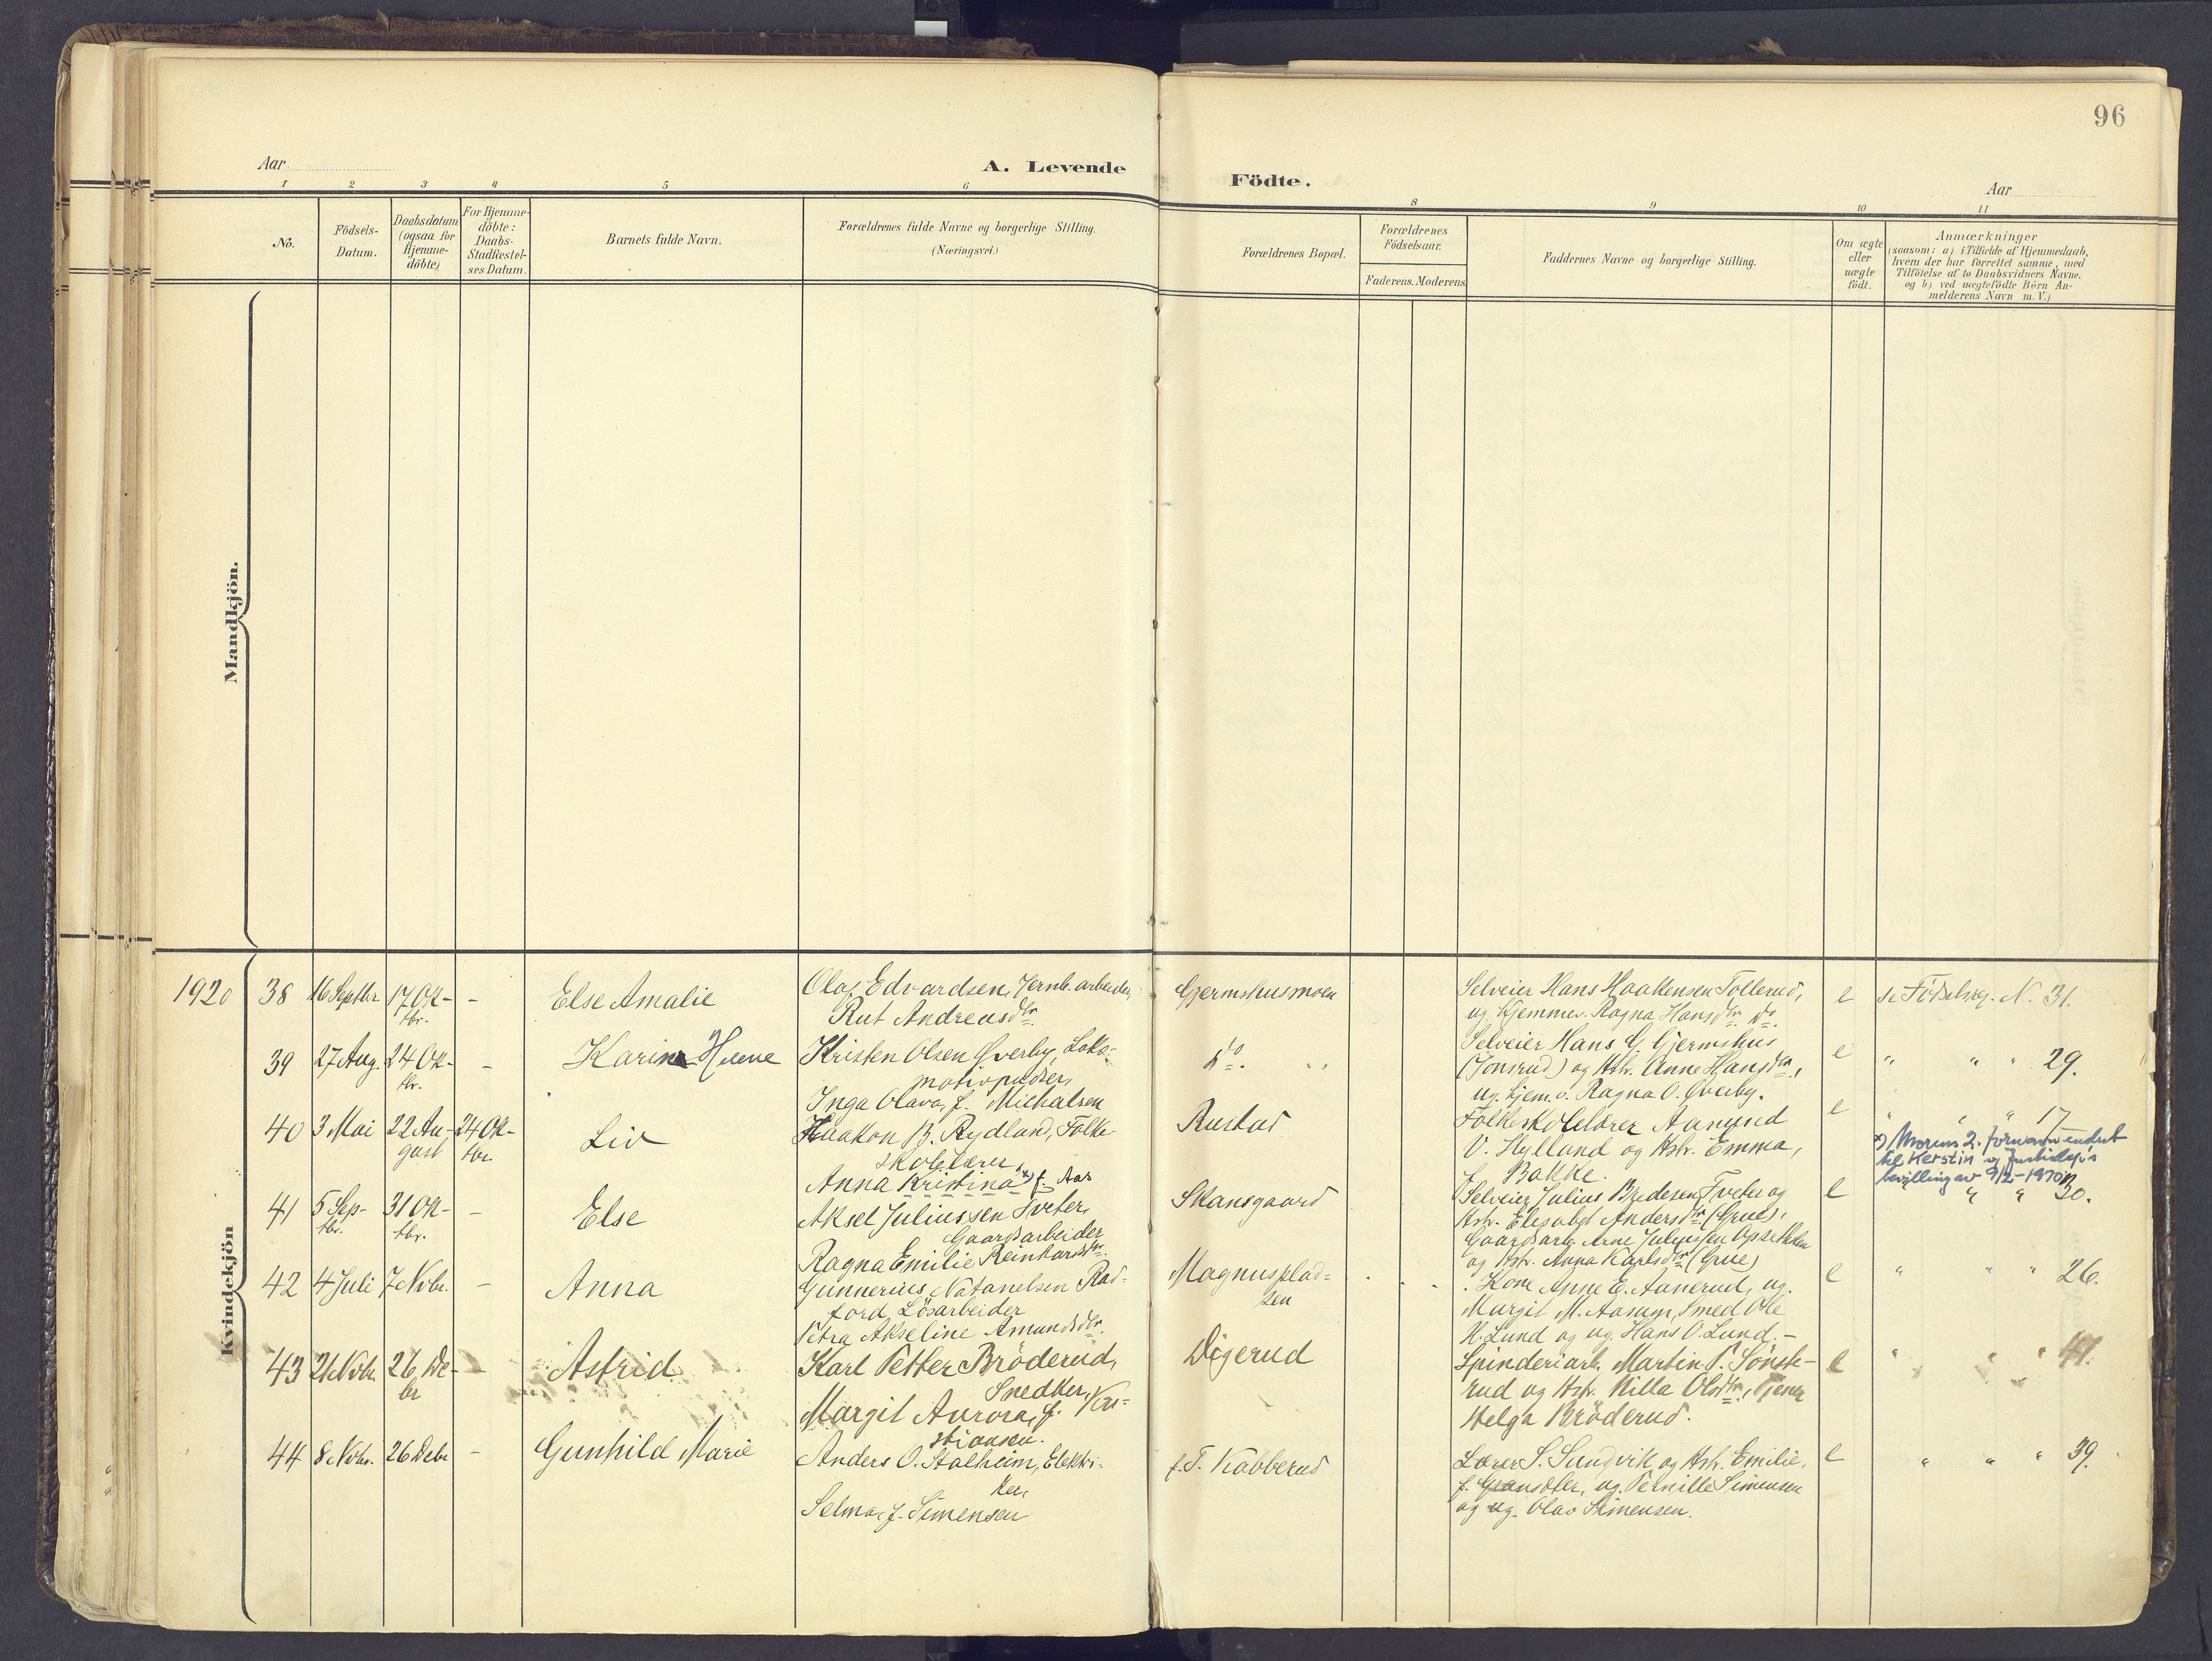 96
Aar
A. Levende
Födte.
Aar
1 2 3 4 5 6 8 9 10 11
No.
Födsels-
Datum.
Daabsdatum
(ogsaa for
Hjemme-
döbte)
For Hjemme-
döbte:
Daabs-
Stadfæstel-
ses Datum.
Barnets fulde Navn.
Forældrenes fulde Navne og borgerlige Stilling.
(Næringsvei.)
Forældrenes Bopæl.
Forældrenes
Födselsaar.
Faderens. Moderens
Faddernes Navne og borgerlige Stilling.
Om ægte
eller
uægte
födt.
Anmærkninger
(saasom: a) i Tilfælde af Hjemmedaab,
hvem der har forrettet samme, med
Tilföielse af to Daabsvidners Navne.
og b) ved uægtefödte Börn An-
melderens Navn m. V.)
Mandkjön.
Kvindekjön
1920
38
16 Septbr.
17 Ok-
tbr.
-
Else Amalie
Olaf Edvardsen, Jernb. arbeider,
Rut Andreasdtr.
Gjermshusmoen
Selveier Hans Haakensen Tollerud,
ug. Hjemmev. Ragna Hansdtr. do.
e
se Födselsreg. N. 31.
39
27 Aug.
24 Ok-
tbr.
-
Karin Helene
Kristen Olsen Överby, Loko-
motivpudser,
Inga Olava, f. Michalsen
Do.
Selveier Hans G. Gjermshus
(Jonsrud) og Hstr. Anne Hansdtr.,
ug. hjem.v. Ragna O. Överby.
e
" " " 29.
40
3 Mai
22 Au-
gust
24 Ok-
tbr.
Liv
Haakon B. Rydland, Folke-
skolelærer,
Anna Kristina x) f. Aas
Rustad
Folkeskolelærer Aamund
V. Hylland og Hstr. Emma,
f. Bakke.
e
" " " 17
x) Morens 2. fornavn endret
til Kerstin
bevilling av 9/2-1970
41
5 Sep-
tbr.
31 Ok-
tbr.
-
Else
Aksel Juliussen Tveter,
Gaardsarbeider
Ragna Emilie Reinhardsdtr.
Skansgaard
Selveier Julius Tveter og
Hstr. Elisabet Andersdtr. (Grue),
Gaardsarb. Arne
og Hstr. Anna Karlsdtr. (Grue)
e
" " 30.
42
4 Juli
7 Novbr.
-
Anna
Gunnerius Natanelsen Rad-
ford Lösarbeider
Petra Akseline Amundsdtr.
Magnusplad-
sen
Kone Anne E. Aanerud, ug.
Margit M. Aasum, Smed Ole
H. Lund og ug. Hans O. Lund. -
e
" " " 26.
43
21 Novbr.
26 De-
br
-
Astrid
Karl Petter Bröderud,
Snedker,
Margit Aurora, f. Kri-
stiansen.
Digerud
Spinderiarb. Martin P. Sönste-
rud og Hstr. Milla Olsdtr., Tjener
Helga Bröderud.
e
" " " 41.
44
8 Novbr.
26 Debr
-
Gunhild Marie
Anders O. Stalheim, Elektri-
ker,
Selma, f. Simensen
f. T. Kabberud
Lærer S. Sundvik og Hstr. Emilie,
ug. Pernille Simensen
og ug. Olav Simensen.
e
" " " 39.